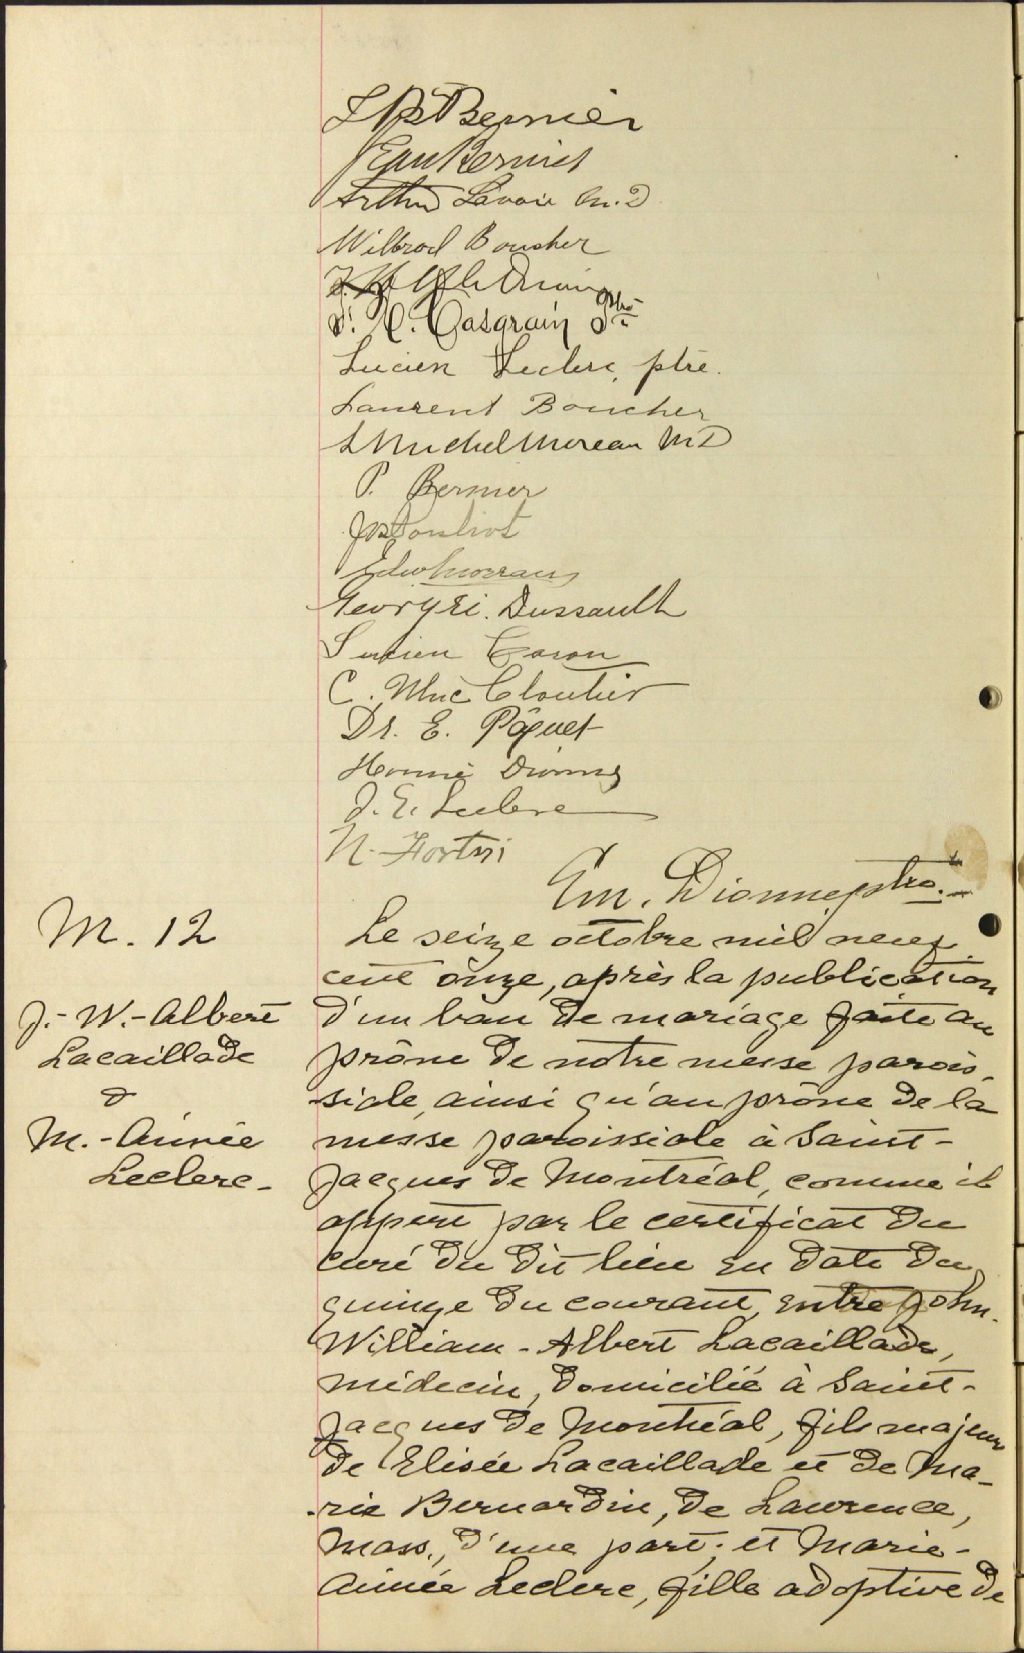 J B Bernier
Jean Bernier
Arthur Lavoie M.D
Wilbrod Boucher
R. Casgrain Ptre
Lucien Leclerc, ptre.
Laurent Boucher
L Michel Moreau M D
P. Bernier
J B Pouliot
Dussault
Lucien Caron
C. Cloutier
Dr. E. Pâquet
Dionne
J. E. Leclerc
N. Fortin
Em. Dionne, ptre.
M. 12
J.-W.-Albert
Lacaillade
&
M.-Aimée
Leclerc-
Le seize octobre mil neuf
cent onze, après la publication
d'un ban de mariage faite au
prône de notre messe parois-
siale, ainsi qu'au prône de la
messe paroissiale à Saint-
Jacques de Montréal, comme il
appert par le certificat du
curé du dit lieu en date du
quinze du courant, entre John-
William-Albert Lacaillade,
médecin, domicilié à Saint-
Jacques de Montréal, fils majeur
de Elisée Lacaillade et de Ma-
rie Bernardin, de Lawrence,
Mass., d'une part; et Marie-
Aimée Leclerc, fille adoptive de